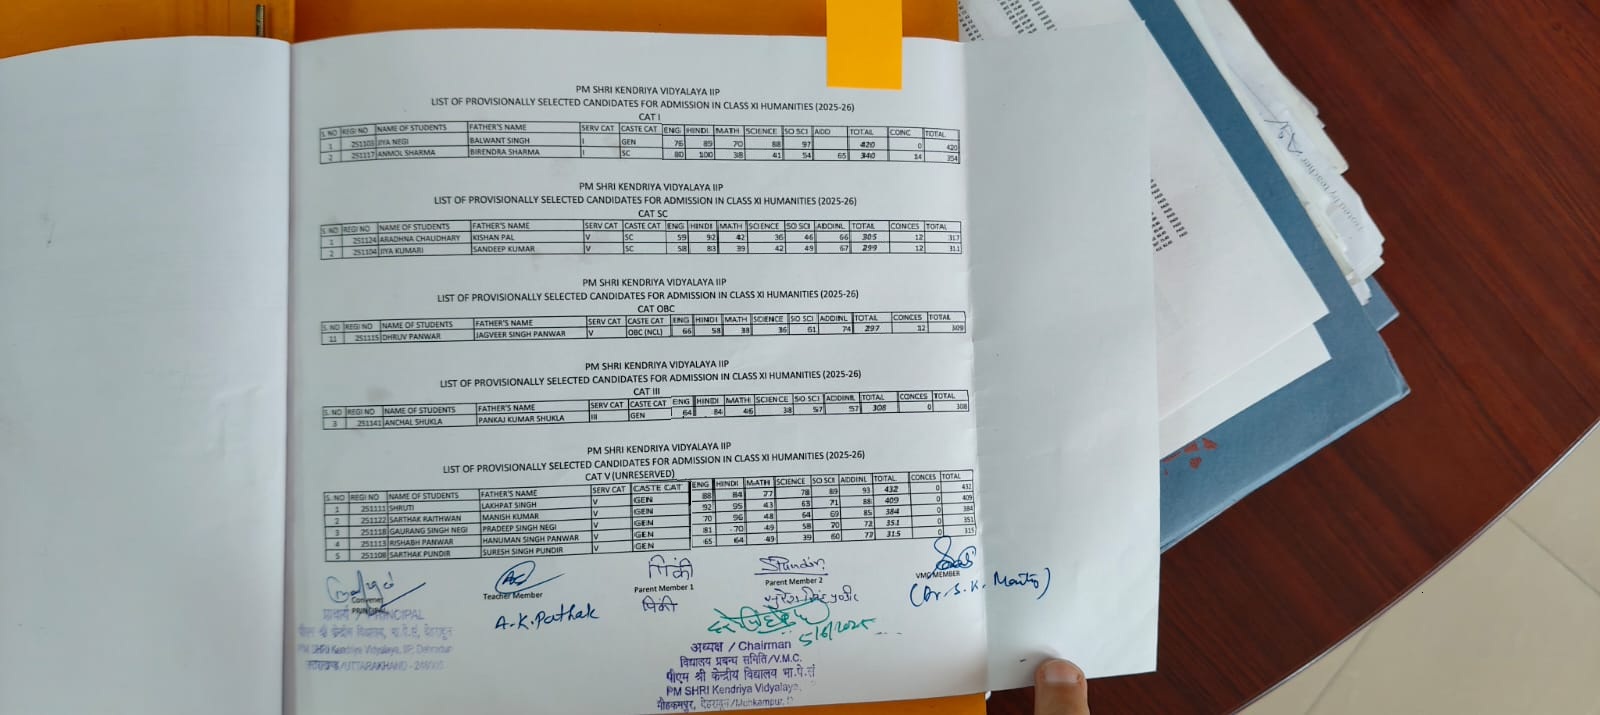 PM SHRI KENDRIYA VIDYALAYA IIP
LIST OF PROVISIONALLY SELECTED CANDIDATES FOR ADMISSION IN CLASS XI HUMANITIES (2025-26)
CAT I
S. NO REGI NO NAME OF STUDENTS FATHER'S NAME SERV CAT CASTE CAT ENG HINDI MATH SCIENCE SO SCI ADD TOTAL CONC TOTAL
1 251103 JIYA NEGI BALWANT SINGH I GEN 76 89 70 88 97 420 0 420
2 251117 ANMOL SHARMA BIRENDRA SHARMA I SC 80 100 38 41 54 65 340 14 354
PM SHRI KENDRIYA VIDYALAYA IIP
LIST OF PROVISIONALLY SELECTED CANDIDATES FOR ADMISSION IN CLASS XI HUMANITIES (2025-26)
CAT SC
S. NO REGI NO NAME OF STUDENTS FATHER'S NAME SERV CAT CASTE CAT ENG HINDI MATH SCIENCE SO SCI ADDINL TOTAL CONCES TOTAL
1 251124 ARADHNA CHAUDHARY KISHAN PAL V SC 59 92 42 36 46 66 305 12 317
2 251104 JIYA KUMARI SANDEEP KUMAR V SC 58 83 39 42 49 67 299 12 311
PM SHRI KENDRIYA VIDYALAYA IIP
LIST OF PROVISIONALLY SELECTED CANDIDATES FOR ADMISSION IN CLASS XI HUMANITIES (2025-26)
CAT OBC
S. NO REGI NO NAME OF STUDENTS FATHER'S NAME SERV CAT CASTE CAT ENG HINDI MATH SCIENCE SO SCI ADDINL TOTAL CONCES TOTAL
11 251115 DHRUV PANWAR JAGVEER SINGH PANWAR V OBC (NCL) 66 58 38 36 61 74 297 12 309
PM SHRI KENDRIYA VIDYALAYA IIP
LIST OF PROVISIONALLY SELECTED CANDIDATES FOR ADMISSION IN CLASS XI HUMANITIES (2025-26)
CAT III
S. NO REGI NO NAME OF STUDENTS FATHER'S NAME SERV CAT CASTE CAT ENG HINDI MATH SCIENCE SO SCI ADDINL TOTAL CONCES TOTAL
3 251141 ANCHAL SHUKLA PANKAJ KUMAR SHUKLA III GEN 64 84 46 38 57 57 308 0 308
PM SHRI KENDRIYA VIDYALAYA IIP
LIST OF PROVISIONALLY SELECTED CANDIDATES FOR ADMISSION IN CLASS XI HUMANITIES (2025-26)
CAT V (UNRESERVED)
S. NO REGI NO NAME OF STUDENTS FATHER'S NAME SERV CAT CASTE CAT ENG HINDI MATH SCIENCE SO SCI ADDINL TOTAL CONCES TOTAL
1 251111 SHRUTI LAKHPAT SINGH V GEN 88 84 77 78 89 93 432 0 432
2 251122 SARTHAK RAITHWAN MANISH KUMAR V GEN 92 95 43 63 71 88 409 0 409
3 251118 GAURANG SINGH NEGI PRADEEP SINGH NEGI V GEN 70 96 48 64 69 85 384 0 384
4 251113 RISHABH PANWAR HANUMAN SINGH PANWAR V GEN 81 70 49 58 70 72 351 0 351
5 251108 SARTHAK PUNDIR SURESH SINGH PUNDIR V GEN 65 64 49 39 60 77 315 0 315
पिंकी
Convener Teacher Member Parent Member 1 Parent Member 2 VMC MEMBER
PRINCIPAL
A.K.Pathak पिंकी
5/6/2025
प्राचार्य / PRINCIPAL
पीएम श्री केन्द्रीय विद्यालय, भा.पे.सं, देहरादून
PM SHRI Kendriya Vidyalaya, IIP, Dehradun
उत्तराखण्ड/UTTARAKHAND - 248005
अध्यक्ष / Chairman
विद्यालय प्रबन्ध समिति/V.M.C.
पीएम श्री केन्द्रीय विद्यालय भा.पे.सं
PM SHRI Kendriya Vidyalaya,
मोहकमपुर, देहरादून/Mohkampur,